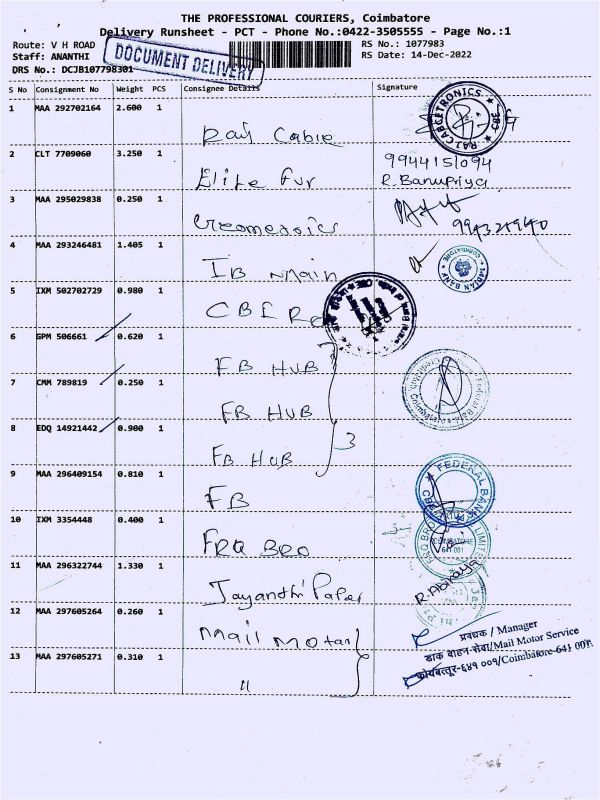 THE PROFESSIONAL COURIERS, Coimbatore
Delivery Runsheet - PCT - Phone No.:0422-3505555 - Page No.:1
Route: V H ROAD
RS No.: 1077983
Staff: ANANTHI
RS Date: 14-Dec-2022
DRS No.: DCJB107798301
DOCUMENT DELIVERY
S No Consignment No Weight PCS Consignee Details Signature
1 MAA 292702164 2.600 1 Raj Cable
2 CLT 7709060 3.250 1 Elite fur 9944151094
R. Banupriya
3 MAA 295029838 0.250 1
4 MAA 293246481 1.405 1 IB main
INDIAN BANK
5 IXM 502702729 0.980 1
6 GPM 506661 0.620 1 FB HUB
7 CMM 789819 0.250 1 FB HUB
8 EDQ 14921442 0.900 1 FB HUB
3
9 MAA 296409154 0.810 1 FB
FEDERAL BANK
10 IXM 3354448 0.400 1 FRQ BRO
COIMBATORE
641 001
11 MAA 296322744 1.330 1 Jayanthi Paper
12 MAA 297605264 0.260 1 Mail Motar
प्रबंधक / Manager
डाक वाहन सेवा/Mail Motor Service
कोयंबत्तूर-६४१ ००१/Coimbatore-641 001
13 MAA 297605271 0.310 1 "